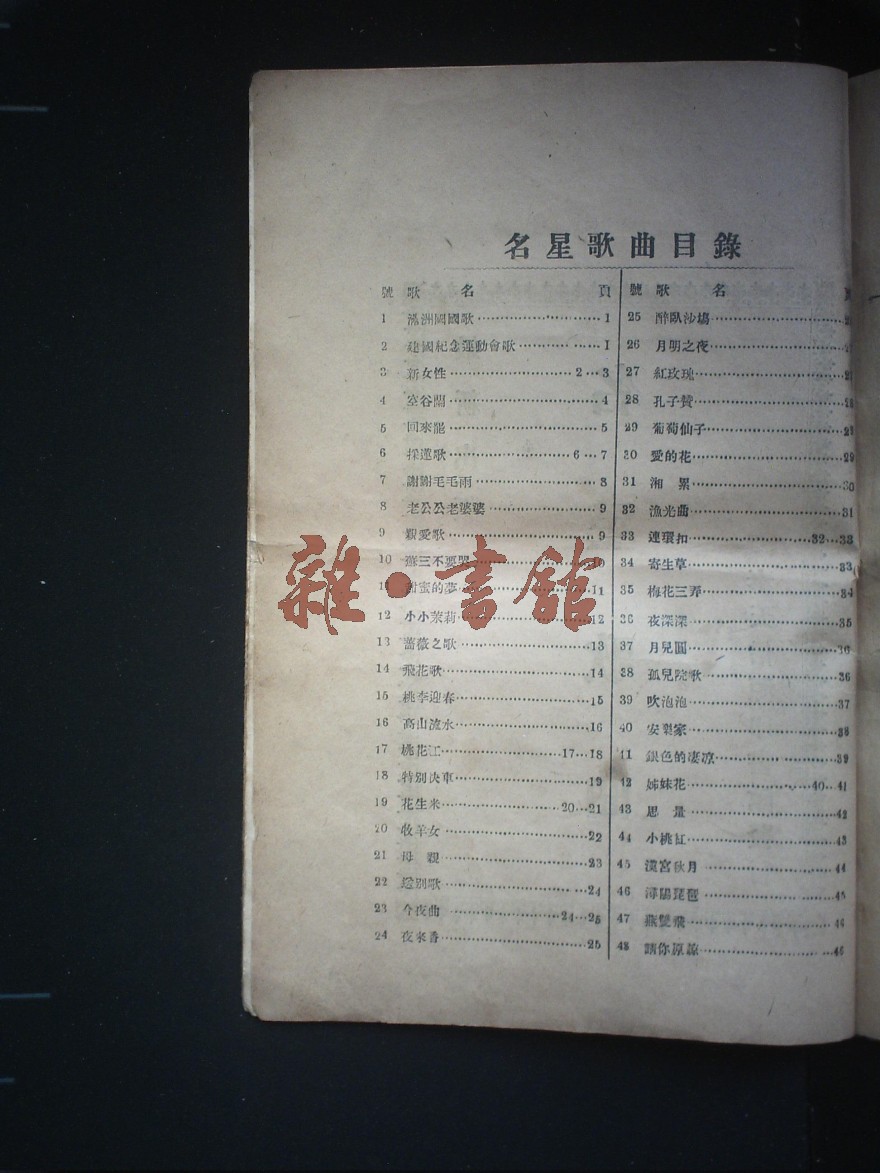 名星歌曲目錄
號 歌 名 頁
1 滿洲國國歌 1
2 建國紀念運動會歌 1
3 新女性 2…3
4 空谷蘭 4
5 回來罷 5
6 採蓮歌 6…7
7 謝謝毛毛雨 8
8 老公公老婆婆 9
9 親愛歌 9
10 蘇三不要哭 10
11 甜蜜的夢 11
12 小小茉莉 12
13 薔薇之歌 13
14 飛花歌 14
15 桃李迎春 15
16 高山流水 16
17 桃花江 17…18
18 特別快車 19
19 花生米 20…21
20 牧羊女 22
21 母親 23
22 送別歌 24
23 今夜曲 24…25
24 夜來香 25
號 歌 名
25 醉臥沙場
26 月明之夜
27 紅玫瑰
28 孔子贊
29 葡萄仙子
30 愛的花 29
31 湘累 30
32 漁光曲 31
33 連環扣 32…33
34 寄生草 33
35 梅花三弄 34
36 夜深深 35
37 月兒圓 36
38 孤兒院歌 36
39 吹泡泡 37
40 安樂家 38
41 銀色的凄凉 39
42 姊妹花 40…41
43 思量 42
44 小桃紅 43
45 漢宮秋月 44
46 潯陽琵琶 45
47 燕雙飛 46
48 請你原諒 46
雜·書館